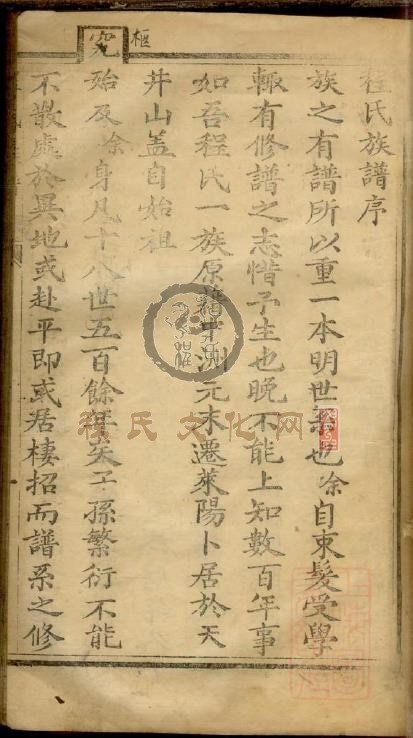 程氏族譜序
族之有譜所以重一本明世系也余自束髮受學
輒有修譜之志惜予生也晚不能上知數百年事
如吾程氏一族原籍中洲元末遷萊陽卜居於天
井山盖自始祖
始及余身凡十八世五百餘年矣子孫繁衍不能
不散處於異地或赴平即或居棲招而譜系之修
樞
究
程氏文化网